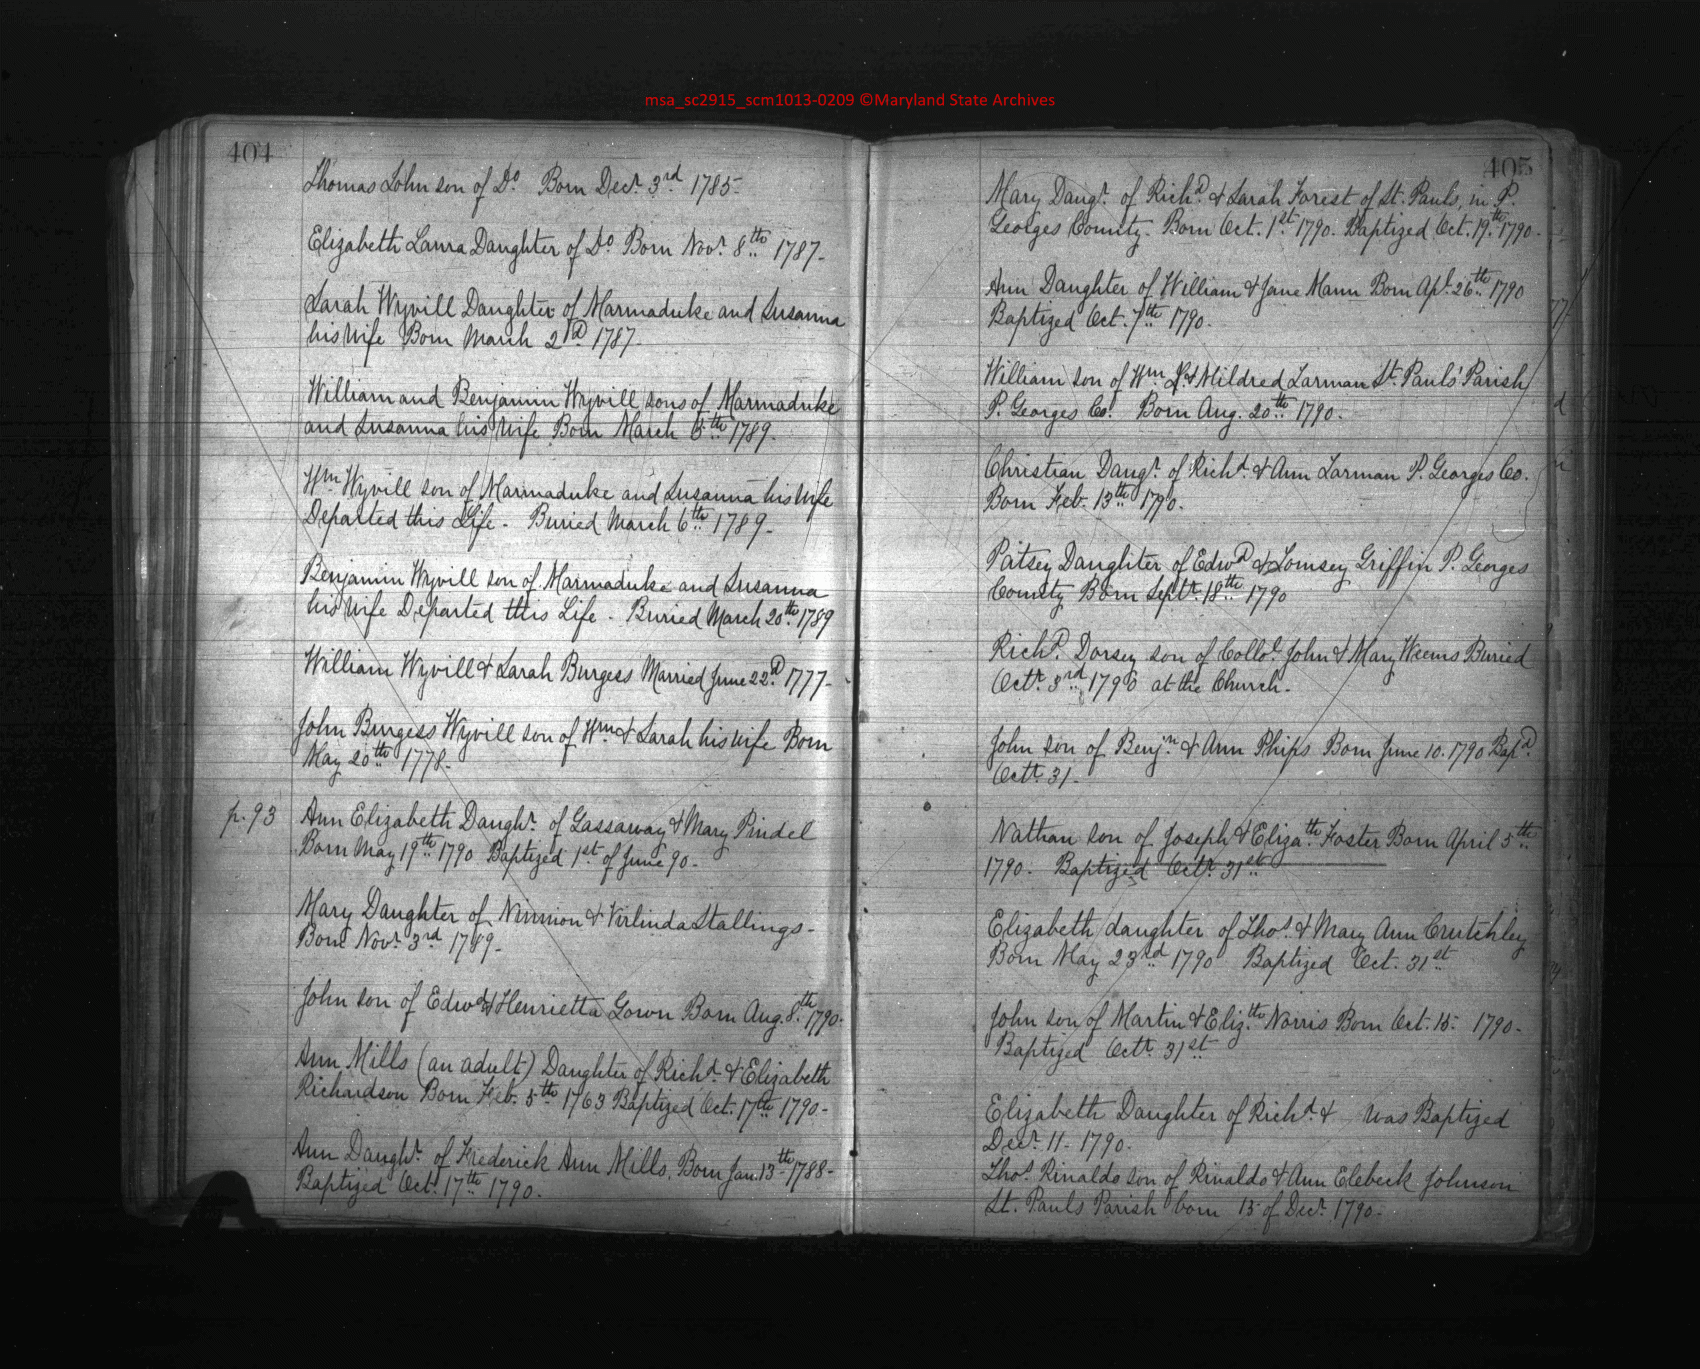 msa_sc2915_scm1013-0209 ©Maryland State Archives
404
Thomas John son of Do. Born Decr. 3rd 1785-
Elizabeth Laura Daughter of Do. Born Novr. 8th 1787-
Sarah Wyvill Daughter of Marmaduke and Susanna
his Wife Born March 2d 1787-
William and Benjamin Wyvill sons of Marmaduke
and Susanna his Wife Born March 5th 1789.
Wm Wyvill son of Marmaduke and Susanna his Wife
Departed this Life - Buried March 6th 1789-
Benjamin Wyvill son of Marmaduke and Susanna
his Wife Departed this Life - Buried March 20th 1789
William Wyvill & Sarah Burgess Married June 22d 1777-
John Burgess Wyvill son of Wm & Sarah his Wife Born
May 20th 1778-
p. 93 Ann Elizabeth Daughr. of Gassaway & Mary Pindel
Born May 19th 1790 Baptized 1st of June 90-
Mary Daughter of Ninnion & Virlinda Stallings-
Born Novr. 3rd 1789-
John son of Edwd & Henrietta Gown Born Aug. 8th 1790-
Ann Mills (an adult) Daughter of Richd. & Elizabeth
Richardson Born Feb. 5th 1763 Baptized Oct. 17th 1790-
Ann Daughr. of Frederick Ann Mills. Born Jan. 13th 1788-
Baptized Oct. 17th 1790.
405
Mary Daugr. of Richd. & Sarah Forest of St. Pauls, in P.
Georges County. Born Oct. 1st 1790. Baptized Oct. 19th 1790-
Ann Daughter of William & Jane Mann Born Apl. 26th 1790
Baptized Oct. 7th 1790.
William son of Wm & Mildred Larman St. Pauls' Parish
P. Georges Co. Born Aug. 20th 1790.
Christian Daugr. of Richd. & Ann Larman P. Georges Co.
Born Feb. 13th 1790.
Patsey Daughter of Edwd & Lomsey Griffin P. Georges
County Born Septr. 18th 1790
Richd. Dorsey son of Collol. John & Mary Weems Buried
Octr. 3rd 1790 at the Church-
John son of Benjn. & Ann Phips Born June 10. 1790 Bapd.
Octr. 31-
Nathan son of Joseph & Elizath. Foster Born April 5th
1790- Baptized Octr. 31st
Elizabeth daughter of Thos. & Mary Ann Crutchley
Born May 23rd 1790 Baptized Oct. 31st
John son of Martin & Elizth. Norris Born Oct. 15- 1790-
Baptized Octr. 31st
Elizabeth Daughter of Richd. & was Baptized
Decr. 11- 1790.
Thos. Rinaldo son of Rinaldo & Ann Elebeck Johnson
St. Pauls Parish born 15 of Decr. 1790-